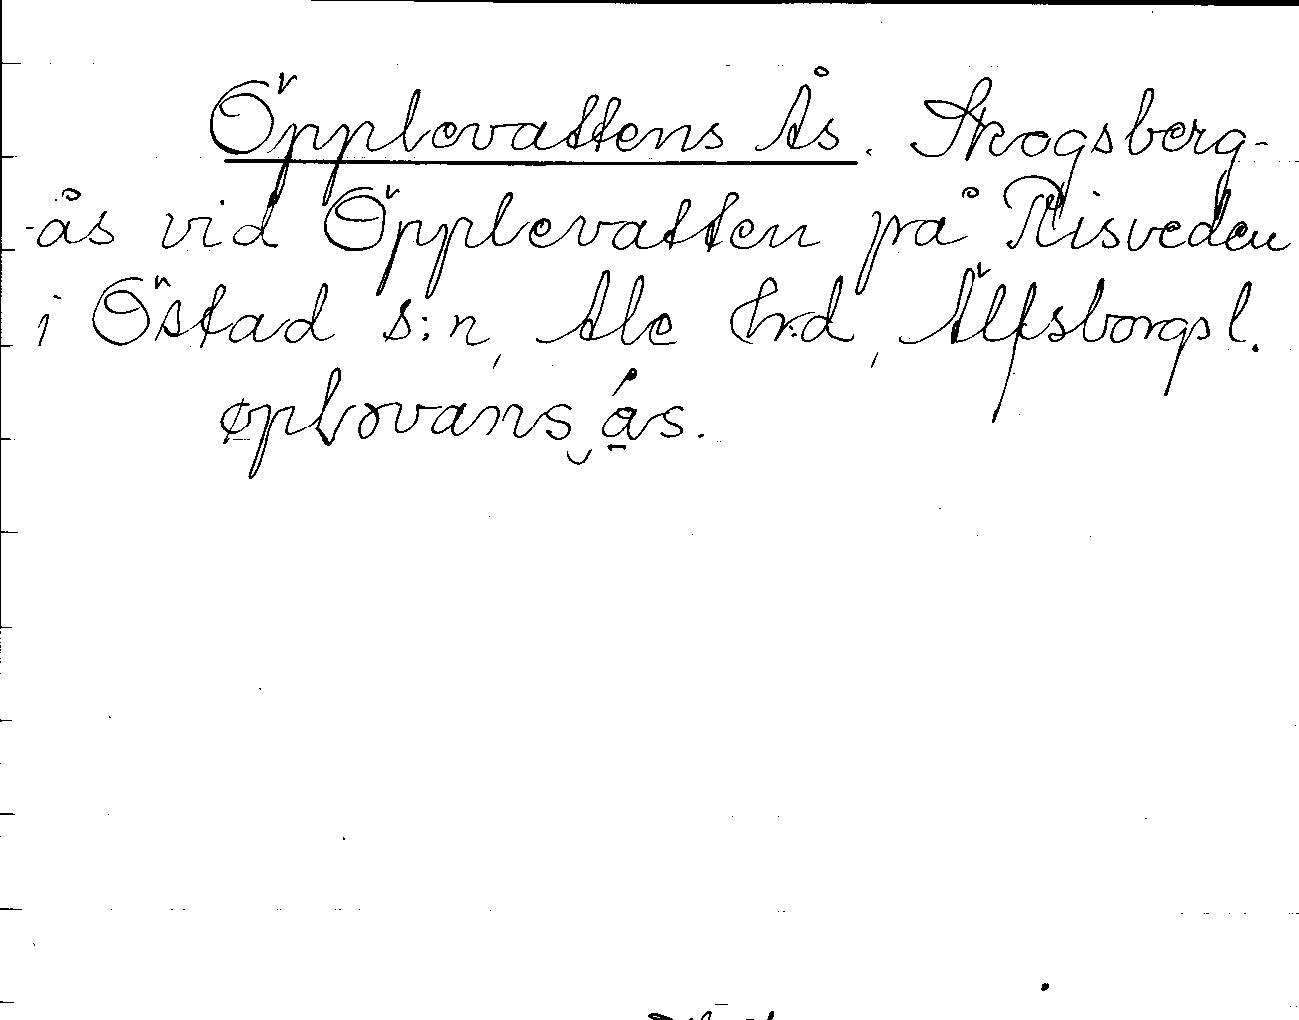 Öpplevattens Ås. Skogsberg-
-ås vid Öpplevatten på Risveden
i Östad s:n, Ale hrd, Älfsborgs l.